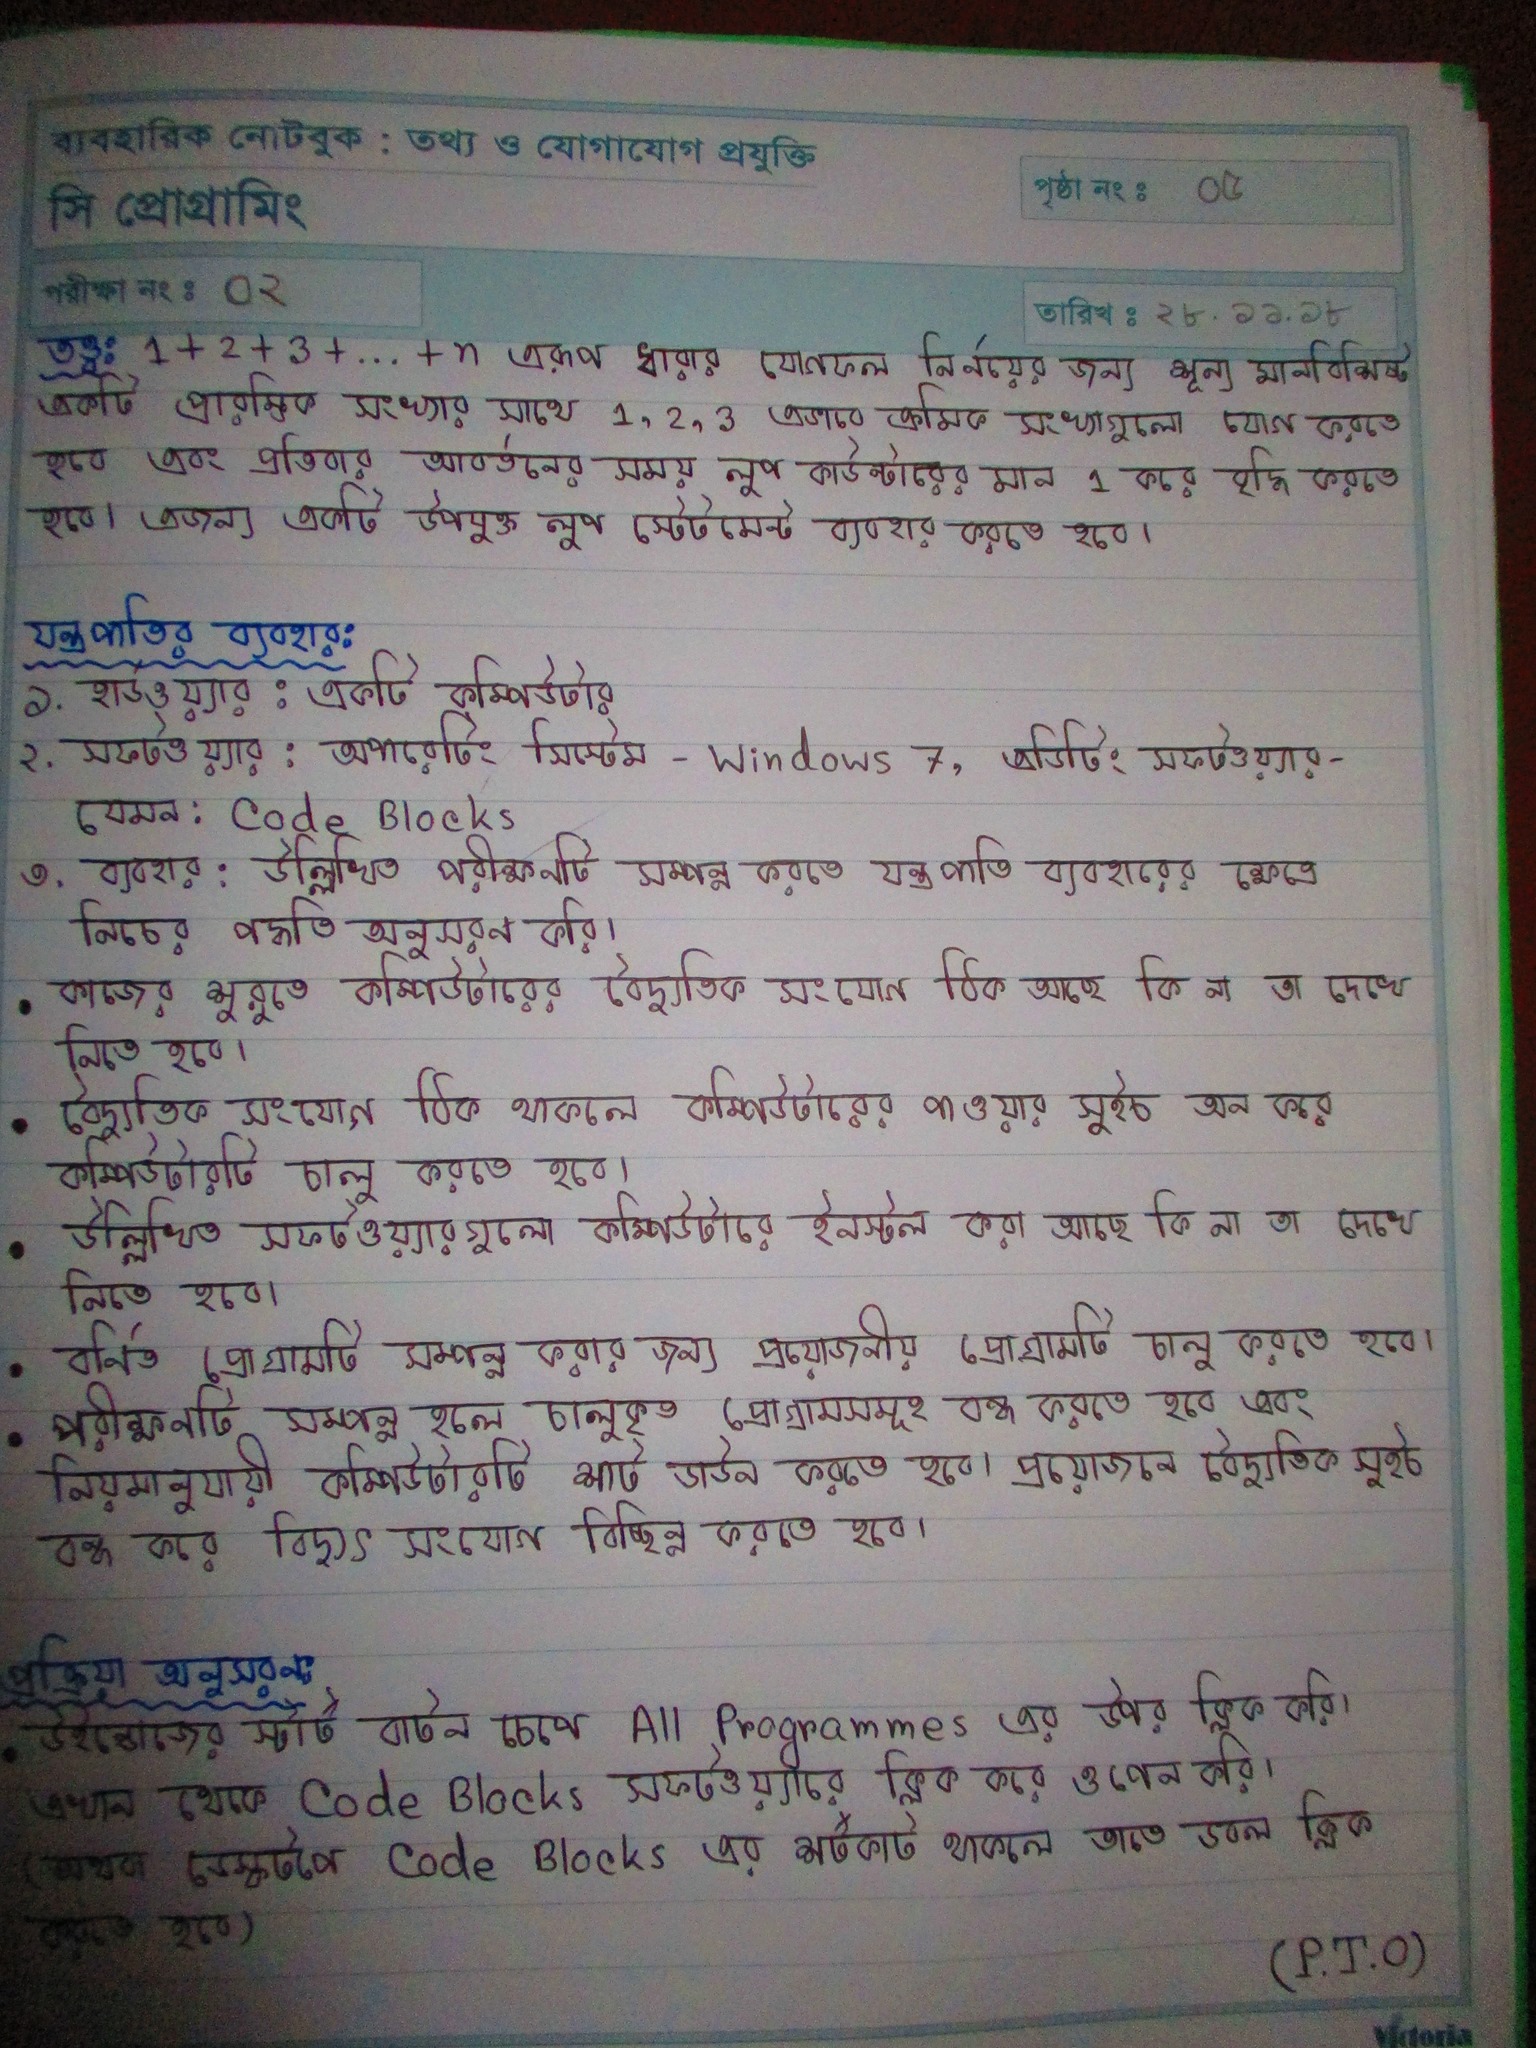 ব্যবহারিক নোটবুক : তথ্য ও যোগাযোগ প্রযুক্তি
সি প্রোগ্রামিং
পৃষ্ঠা নং : ০৫
পরীক্ষা নং : ০২
তারিখ : ২৮.১১.১৮
তত্ত্ব: 1+2+3+...+n এরূপ ধারার যোগফল নির্ণয়ের জন্য শূন্য মানবিশিষ্ট
একটি প্রারম্ভিক সংখ্যার সাথে 1, 2, 3 এভাবে ক্রমিক সংখ্যাগুলো যোগ করতে
হবে এবং প্রতিবার আবর্তনের সময় লুপ কাউন্টারের মান 1 করে বৃদ্ধি করতে
হবে। এজন্য একটি উপযুক্ত লুপ স্টেটমেন্ট ব্যবহার করতে হবে।
যন্ত্রপাতির ব্যবহার:
১. হার্ডওয়্যার : একটি কম্পিউটার
২. সফটওয়্যার : অপারেটিং সিস্টেম - Windows 7, এডিটিং সফটওয়্যার-
যেমন: Code Blocks
৩. ব্যবহার : উল্লিখিত পরীক্ষনটি সম্পন্ন করতে যন্ত্রপাতি ব্যবহারের ক্ষেত্রে
নিচের পদ্ধতি অনুসরন করি।
• কাজের শুরুতে কম্পিউটারের বৈদ্যুতিক সংযোগ ঠিক আছে কি না তা দেখে
নিতে হবে।
• বৈদ্যুতিক সংযোগ ঠিক থাকলে কম্পিউটারের পাওয়ার সুইচ অন করে
কম্পিউটারটি চালু করতে হবে।
• উল্লিখিত সফটওয়্যারগুলো কম্পিউটারে ইনস্টল করা আছে কি না তা দেখে
নিতে হবে।
• বর্নিত প্রোগ্রামটি সম্পন্ন করার জন্য প্রয়োজনীয় প্রোগ্রামটি চালু করতে হবে।
• পরীক্ষনটি সম্পন্ন হলে চালুকৃত প্রোগ্রামসমূহ বন্ধ করতে হবে এবং
নিয়মানুযায়ী কম্পিউটারটি শাট ডাউন করতে হবে। প্রয়োজনে বৈদ্যুতিক সুইচ
বন্ধ করে বিদ্যুৎ সংযোগ বিচ্ছিন্ন করতে হবে।
প্রক্রিয়া অনুসরন:
• উইন্ডোজের স্টার্ট বাটন চেপে All Programmes এর উপর ক্লিক করি।
এখান থেকে Code Blocks সফটওয়্যারে ক্লিক করে ওপেন করি।
(অথবা ডেস্কটপে Code Blocks এর শর্টকাট থাকলে তাতে ডবল ক্লিক
করতে হবে)
(P.T.O)
Victoria